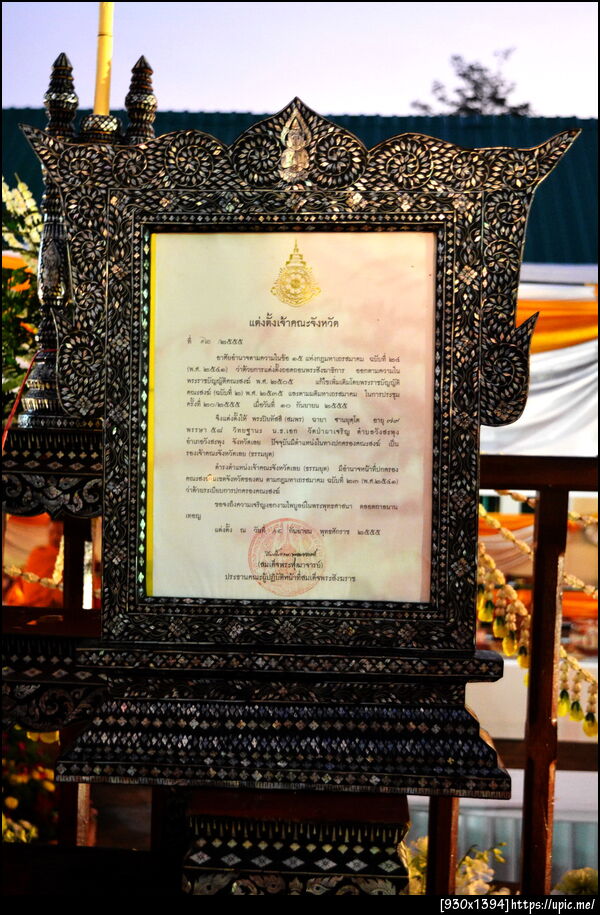 แต่งตั้งเจ้าคณะจังหวัด
ที่ ๙๒ /๒๕๕๕
อาศัยอำนาจตามความในข้อ ๑๕ แห่งกฎมหาเถรสมาคม ฉบับที่ ๒๔
(พ.ศ. ๒๕๔๑) ว่าด้วยการแต่งตั้งถอดถอนพระสังฆาธิการ ออกตามความใน
พระราชบัญญัติคณะสงฆ์ พ.ศ. ๒๕๐๕ แก้ไขเพิ่มเติมโดยพระราชบัญญัติ
คณะสงฆ์ (ฉบับที่ ๒) พ.ศ. ๒๕๓๕ และตามมติมหาเถรสมาคม ในการประชุม
ครั้งที่ ๒๐/๒๕๕๕ เมื่อวันที่ ๑๐ กันยายน ๒๕๕๕
จึงแต่งตั้งให้ (สมพร) ฉายา อายุ ๗๙
พรรษา ๕๘ วิทยฐานะ น.ธ.เอก วัดป่าผาเจริญ ตำบลวังสะพุง
อำเภอวังสะพุง จังหวัดเลย ปัจจุบันมีตำแหน่งในทางปกครองคณะสงฆ์ เป็น
รองเจ้าคณะจังหวัดเลย (ธรรมยุต)
ดำรงตำแหน่งเจ้าคณะจังหวัดเลย (ธรรมยุต) มีอำนาจหน้าที่ปกครอง
คณะสงฆ์ในเขตจังหวัดของตน ตามกฎมหาเถรสมาคม ฉบับที่ ๒๓ (พ.ศ.๒๕๔๑)
ว่าด้วยระเบียบการปกครองคณะสงฆ์
ขอจงถึงความเจริญงอกงามไพบูลย์ในพระพุทธศาสนา ตลอดกาลนาน
เทอญ
แต่งตั้ง ณ วันที่ ๑๔ กันยายน พุทธศักราช ๒๕๕๕
(สมเด็จพระพุฒาจารย์)
ประธานคณะผู้ปฏิบัติหน้าที่สมเด็จพระสังฆราช
[930x1394]https://upic.me/